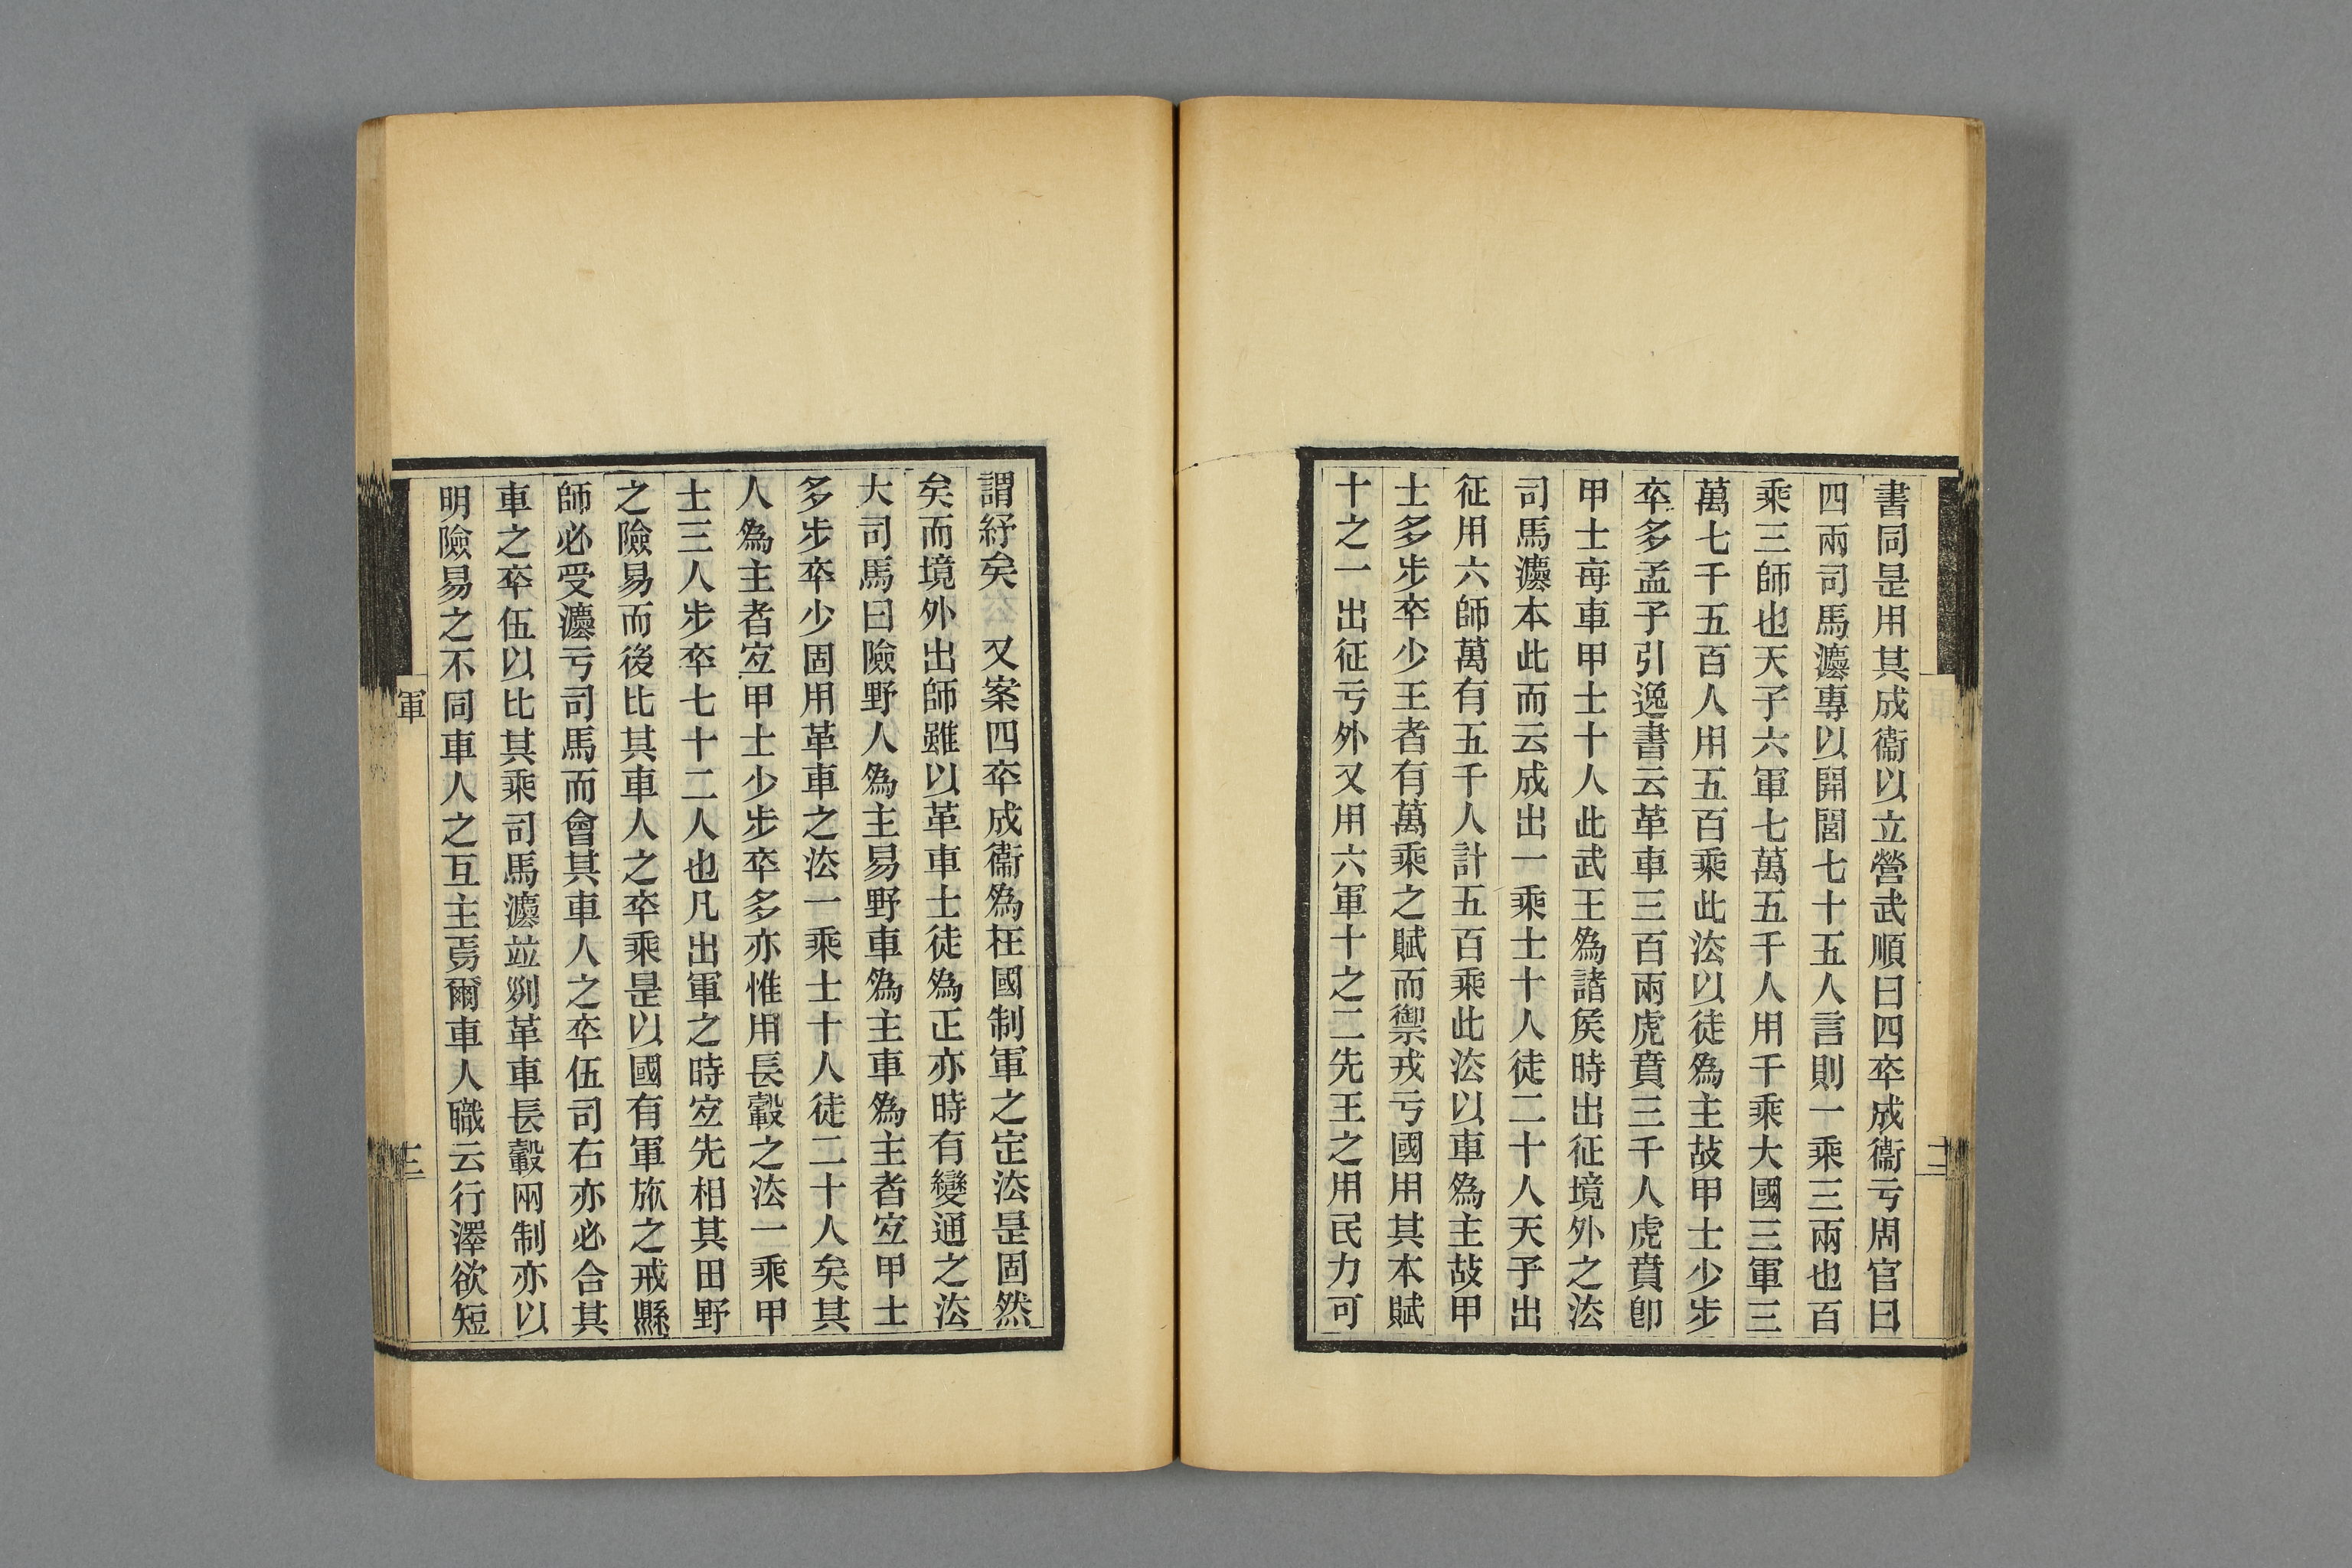 書同是用其成衞以立營武順曰四卒成衞亏周官曰
四兩司馬灋專以開閭七十五人言則一乘三兩也百
乘三師也天子六軍七萬五千人用千乘大國三軍三
萬七千五百人用五百乘此法以徒爲主故甲士少步
卒多孟子引逸書云革車三百兩虎賁三千人虎賁卽
甲士每車甲士十人此武王爲諸矦時出征境外之法
司馬灋本此而云成出一乘士十人徒二十人天子出
征用六師萬有五千人計五百乘此法以車爲主故甲
士多步卒少王者有萬乘之賦而禦戎亏國用其本賦
十之一出征亏外又用六軍十之二先王之用民力可
謂紓矣　又案四卒成衞爲在國制軍之定法是固然
矣而境外出師雖以革車士徒爲正亦時有變通之法
大司馬曰險野人爲主易野車爲主車爲主者宐甲士
多步卒少固用革車之法一乘士十人徒二十人矣其
人爲主者宐甲士少步卒多亦惟用長轂之法一乘甲
士三人步卒七十二人也凡出軍之時宐先相其田野
之險易而後比其車人之卒乘是以國有軍旅之戒縣
師必受灋亏司馬而會其車人之卒伍司右亦必合其
車之卒伍以比其乘司馬灋竝列革車長轂兩制亦以
明險易之不同車人之互主焉爾車人職云行澤欲短
軍
十三